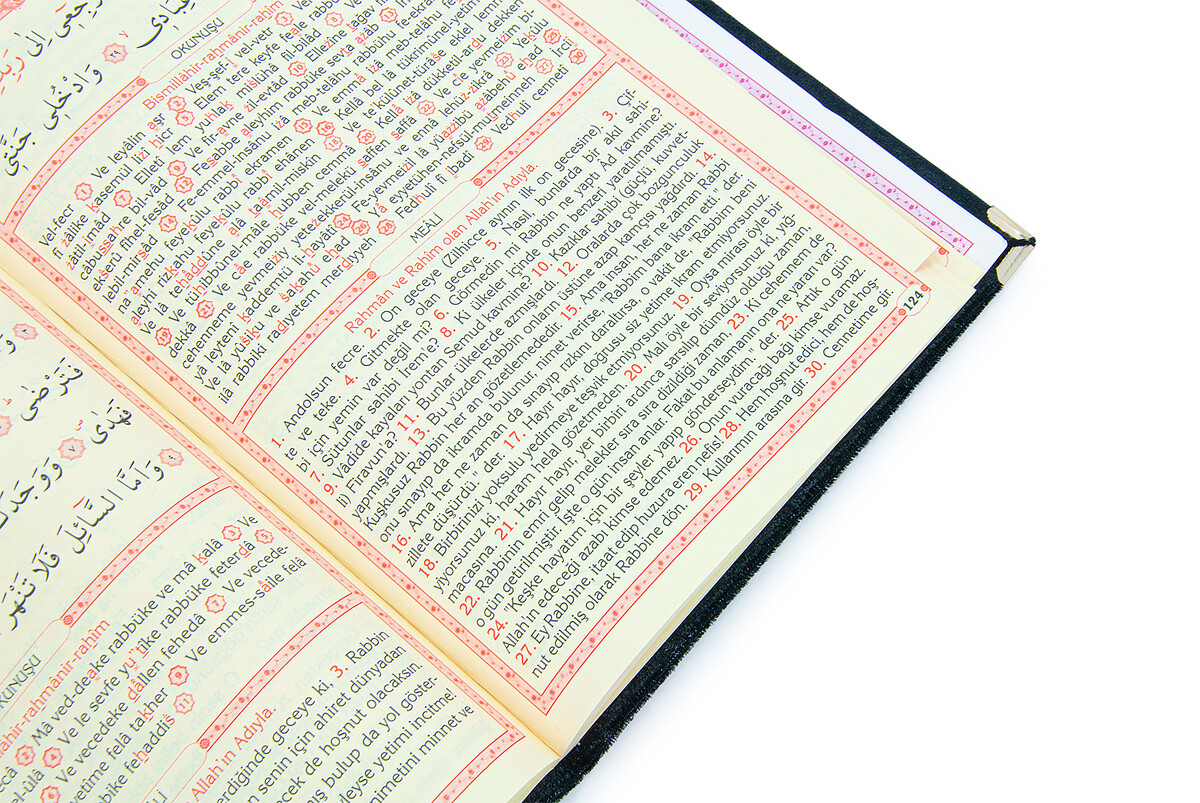 ارْجِعِي إِلَى رَبِّكِ
عِبَادِي ٢٩ وَادْخُلِي جَنَّتِي
OKUNUŞU
Bismillâhir-rahmânir-rahîm
vel-fecri ① Ve leyâlin aşr ② Veş-şef'i vel-vetr ③
fî zâlike kasemül li zî hicr ⑤ Elem tere keyfe feale rabbü
zâil-ımâd ⑦ Elletî lem yuhlak mislühâ fil-bilâd
câbussahre bil-vâd ⑨ Ve fir'avne zil-evtâd ⑩ Ellezîne tağav
ekserû fîhel fesâd ⑫ Fesabbe aleyhim rabbüke sevta azâb ⑬
lebil-mirsâd ⑭ Feemmel-insânu izâ meb-telâhu rabbühu fe-ekra
na'amehu feyekûlu rabbî ekramen ⑮ Ve emmâ izâ meb-telâhu fe
aleyhi rizkahu feyekûlu rabbî ehânen ⑯ Kellâ bel lâ tükrimûnel-yetîm
Ve lâ tehâddûne alâ taâmil-miskîn ⑱ Ve te'kûlûnet-türâse eklel lem
⑲ Ve tühıbbûnel-mâle hubben cemmâ ⑳ Kellâ izâ dükketil-ardu dekken
dekkâ ㉑ Ve câe rabbüke vel-melekü saffen saffâ ㉒ Ve cîe yevmeizim bi-
cehenneme yevmeiziy yetezekkerül-insânu ve ennâ lehüz-zikrâ ㉓ Yekûlü
yâ leytenî kaddemtü li hayâtî ㉔ Fe-yevmeizil lâ yüazzibü azâbehû ehad ㉕
Ve lâ yûsiku ve sâkahû ehad ㉖ Yâ eyyetühen-nefsül-mutmeinneh ㉗ İrciî
ilâ rabbiki râdiyetem merdiyyeh ㉘ Fedhulî fî ibadî ㉙ Vedhulî cennetî ㉚
MEÂLİ
Rahmân ve Rahîm olan Allah'ın Adıyla.
1. Andolsun fecre, 2. On geceye (Zilhicce ayının ilk on gecesine), 3. Çif-
te ve teke, 4. Gitmekte olan geceye. 5. Nasıl, bunlarda bir akıl sahi-
bi için yemin var değil mi? 6. Görmedin mi Rabbin ne yaptı Âd kavmine?
7. Sütunlar sahibi İreme? 8. Ki ülkeler içinde onun benzeri yaratılmamıştı.
9. Vâdide kayaları yontan Semud kavmine? 10. Kazıklar sahibi (güçlü, kuvvet-
li) Firavun'a? 11. Bunlar ülkelerde azmışlardı. 12. Oralarda çok bozgunculuk
yapmışlardı. 13. Bu yüzden Rabbin onların üstüne azap kamçısı yağdırdı. 14.
Kuşkusuz Rabbin her an gözetlemededir. 15. Ama insan, her ne zaman Rabbi
onu sınayıp da ikramda bulunur, nimet verirse, "Rabbim bana ikram etti." der.
16. Ama her ne zaman da sınayıp rızkını daraltırsa, o vakit de, "Rabbim beni
zillete düşürdü." der. 17. Hayır hayır, doğrusu siz yetime ikram etmiyorsunuz.
18. Birbirinizi yoksulu yedirmeye teşvik etmiyorsunuz. 19. Oysa mirası öyle bir
yiyorsunuz ki, haram, helal gözetmeden. 20. Malı öyle bir seviyorsunuz ki, yığ-
macasına. 21. Hayır hayır, yer birbiri ardınca sarsılıp dümdüz olduğu zaman,
22. Rabbinin emri gelip melekler sıra sıra dizildiği zaman, 23. Ki cehennem de
o gün getirilmiştir. İşte o gün insan anlar. Fakat bu anlamanın ona ne yararı var?
24. "Keşke hayatım için bir şeyler yapıp gönderseydim." der. 25. Artık o gün
Allah'ın edeceği azabı kimse edemez. 26. Onun vuracağı bağı kimse vuramaz.
27. Ey Rabbine, itaat edip huzura eren nefis. 28. Hem hoşnut edici, hem de hoş-
nut edilmiş olarak Rabbine dön. 29. Kullarımın arasına gir. 30. Cennetime gir.
124
فَتَرْضَى
فَهَدَى ٧ وَوَجَدَكَ
٩ وَأَمَّا السَّائِلَ فَلَا تَنْهَرْ
KUNUŞU
llâhir-rahmânir-rahîm
③ Mâ ved-deake rabbüke ve mâ kalâ ③ Ve
el-ûlâ ④ Ve le sevfe yu'tîke rabbüke feterdâ ⑤
⑥ Ve vecedeke dâllen fehedâ ⑦ Ve vecede-
yetîme felâ takher ⑨ Ve emmes-sâile felâ
bike fehaddis ⑪
Allah'ın Adıyla.
erdiğinde geceye ki, 3. Rabbin
senin için ahiret dünyadan
ecek de hoşnut olacaksın.
mış bulup da yol göster-
leyse yetimi incitme.
nimetini minnet ve